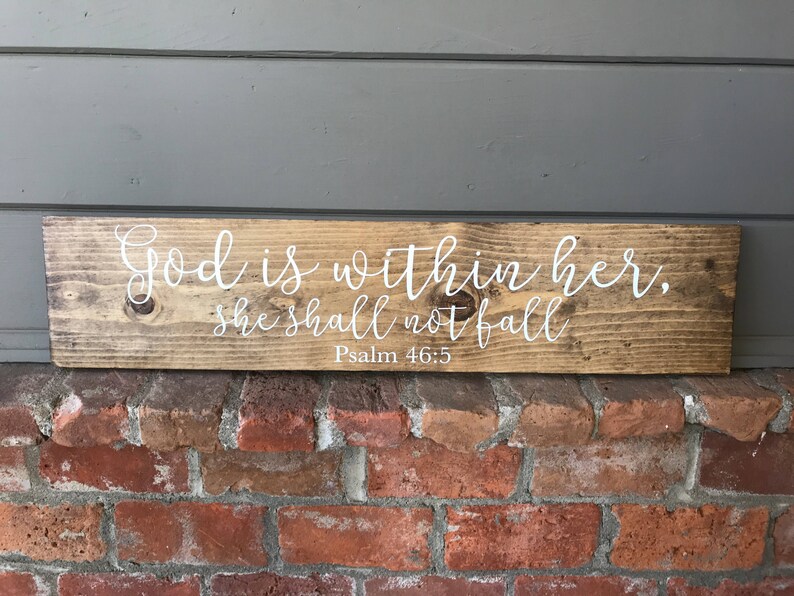 God is within her,
she shall not fall
Psalm 46:5